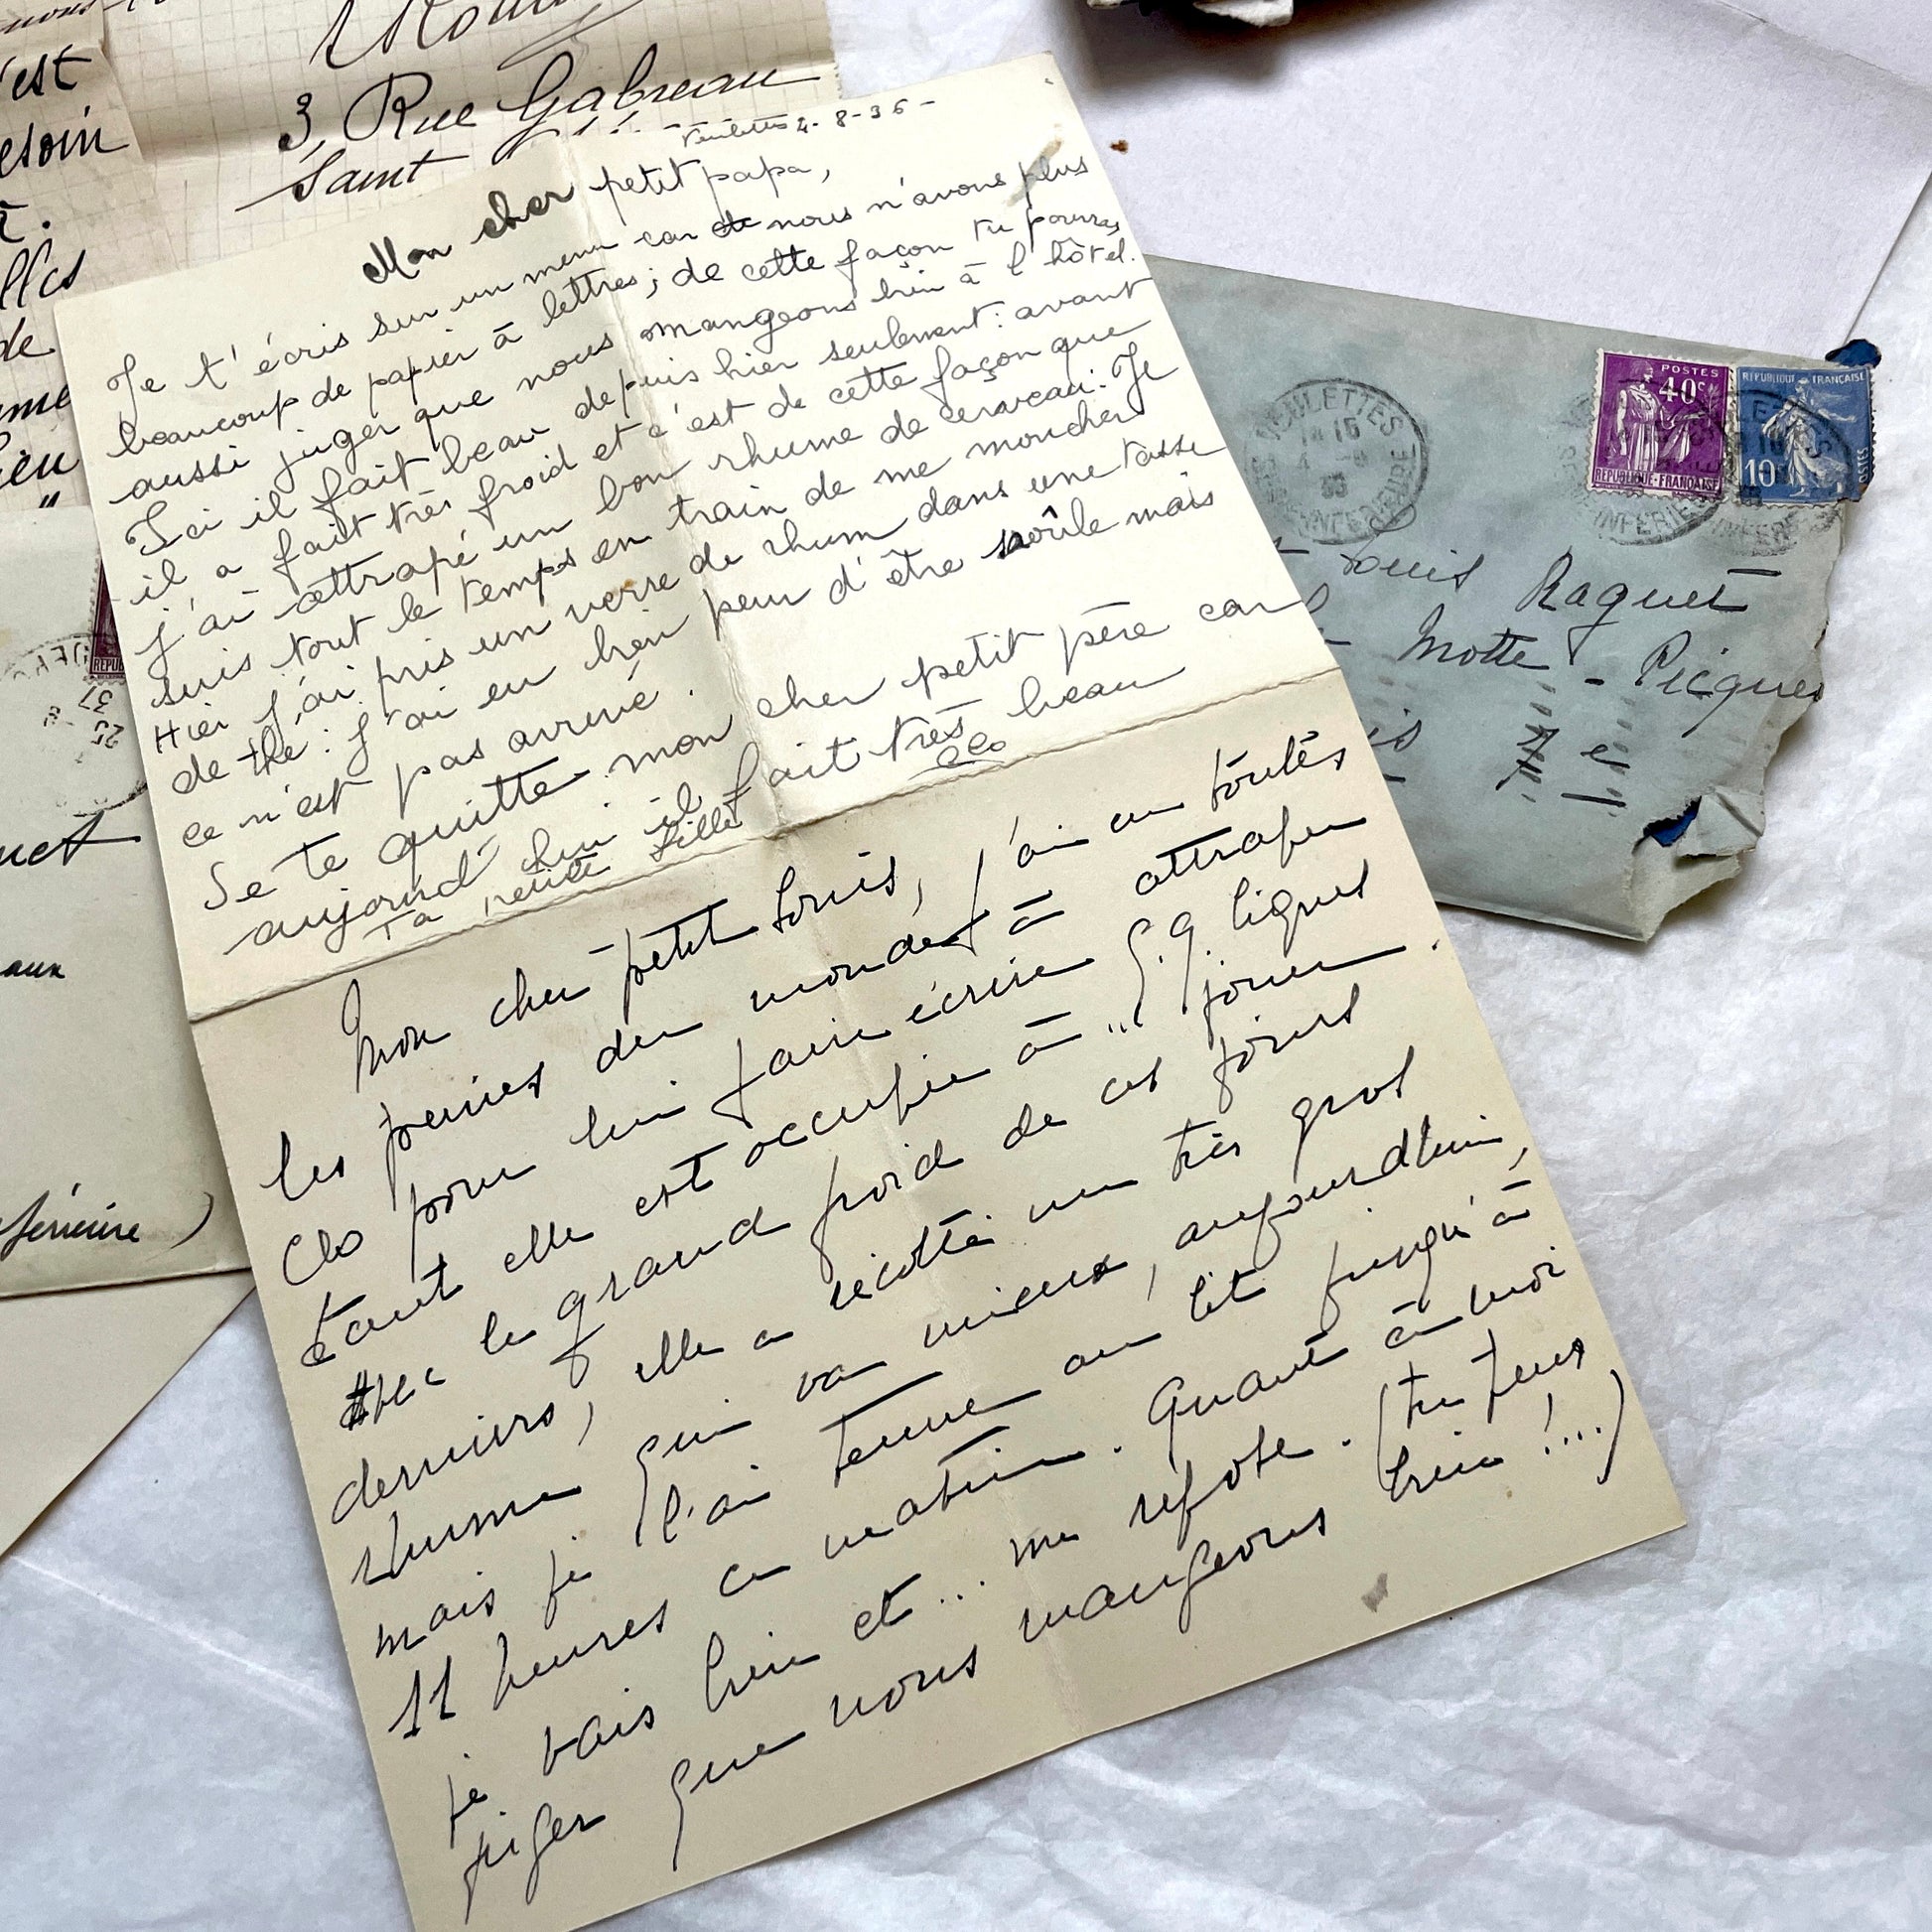 'est
esoin
lles
de
ame
ieu
3, Rue Gabreau
Saint
Veulettes 4-8-36-
Mon cher petit papa,
Je t'écris sur un menu car de nous n'avons plus
beaucoup de papier à lettres; de cette façon tu pourras
aussi juger que nous mangeons bien à l'hôtel.
Ici il fait beau depuis hier seulement: avant
il a fait très froid et c'est de cette façon que
j'ai attrapé un bon rhume de cerveau. Je
suis tout le temps en train de me moucher
Hier j'ai pris un verre de rhum dans une tasse
de thé: j'ai eu bien peur d'être soûle mais
ce n'est pas arrivé.
Je te quitte mon cher petit père car
aujourd'hui il fait très beau
Ta petite fille
Clo
Mon cher petit Louis, j'ai eu toutes
les peines du monde à attraper
Clo pour lui faire écrire q.q. lignes
tant elle est occupée à... jouer.
Avec le grand froid de ces jours
derniers, elle a récolté un très gros
rhume qui va mieux, aujourd'hui,
mais je l'ai tenue au lit jusqu'à
11 heures ce matin. Quant à moi
je vais bien et... me repose. (tu peux
piger que nous mangeons bien!...)
VEULETTES
SEINE INFERIEURE
POSTES
40c
REPUBLIQUE-FRANÇAISE
REPUBLIQUE FRANÇAISE
10c
POSTES
Louis Raquet
Motte-Picquet
is 7e
REPUB
25
37
uet
aux
férieure)